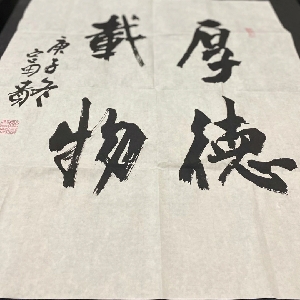 厚德
載物
庚子冬